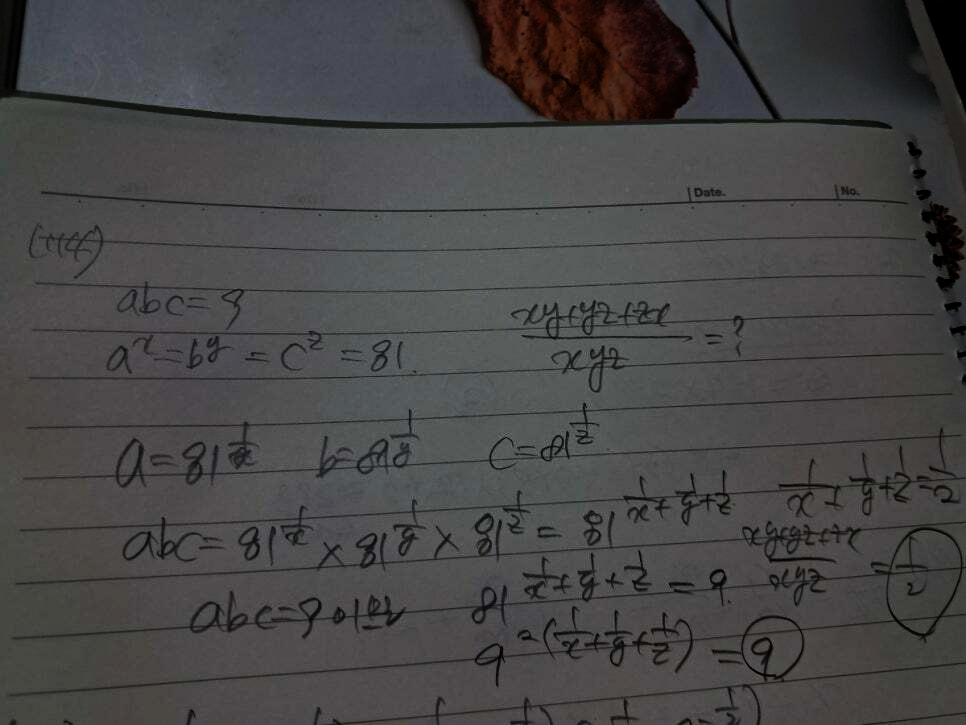 Date. No.
abc = 9
a^x = b^y = c^z = 81.
\frac{xy+yz+zx}{xyz} = ?
a = 81^{\frac{1}{x}} b = 81^{\frac{1}{y}} c = 81^{\frac{1}{z}}
abc = 81^{\frac{1}{x}} × 81^{\frac{1}{y}} × 81^{\frac{1}{z}} = 81^{\frac{1}{x}+\frac{1}{y}+\frac{1}{z}}
\frac{1}{x}+\frac{1}{y}+\frac{1}{z}=\frac{1}{2}
abc = 9 이므로 81^{\frac{1}{x}+\frac{1}{y}+\frac{1}{z}} = 9.
\frac{xy+yz+zx}{xyz} = \frac{1}{2}
9^{2(\frac{1}{x}+\frac{1}{y}+\frac{1}{z})} = 9